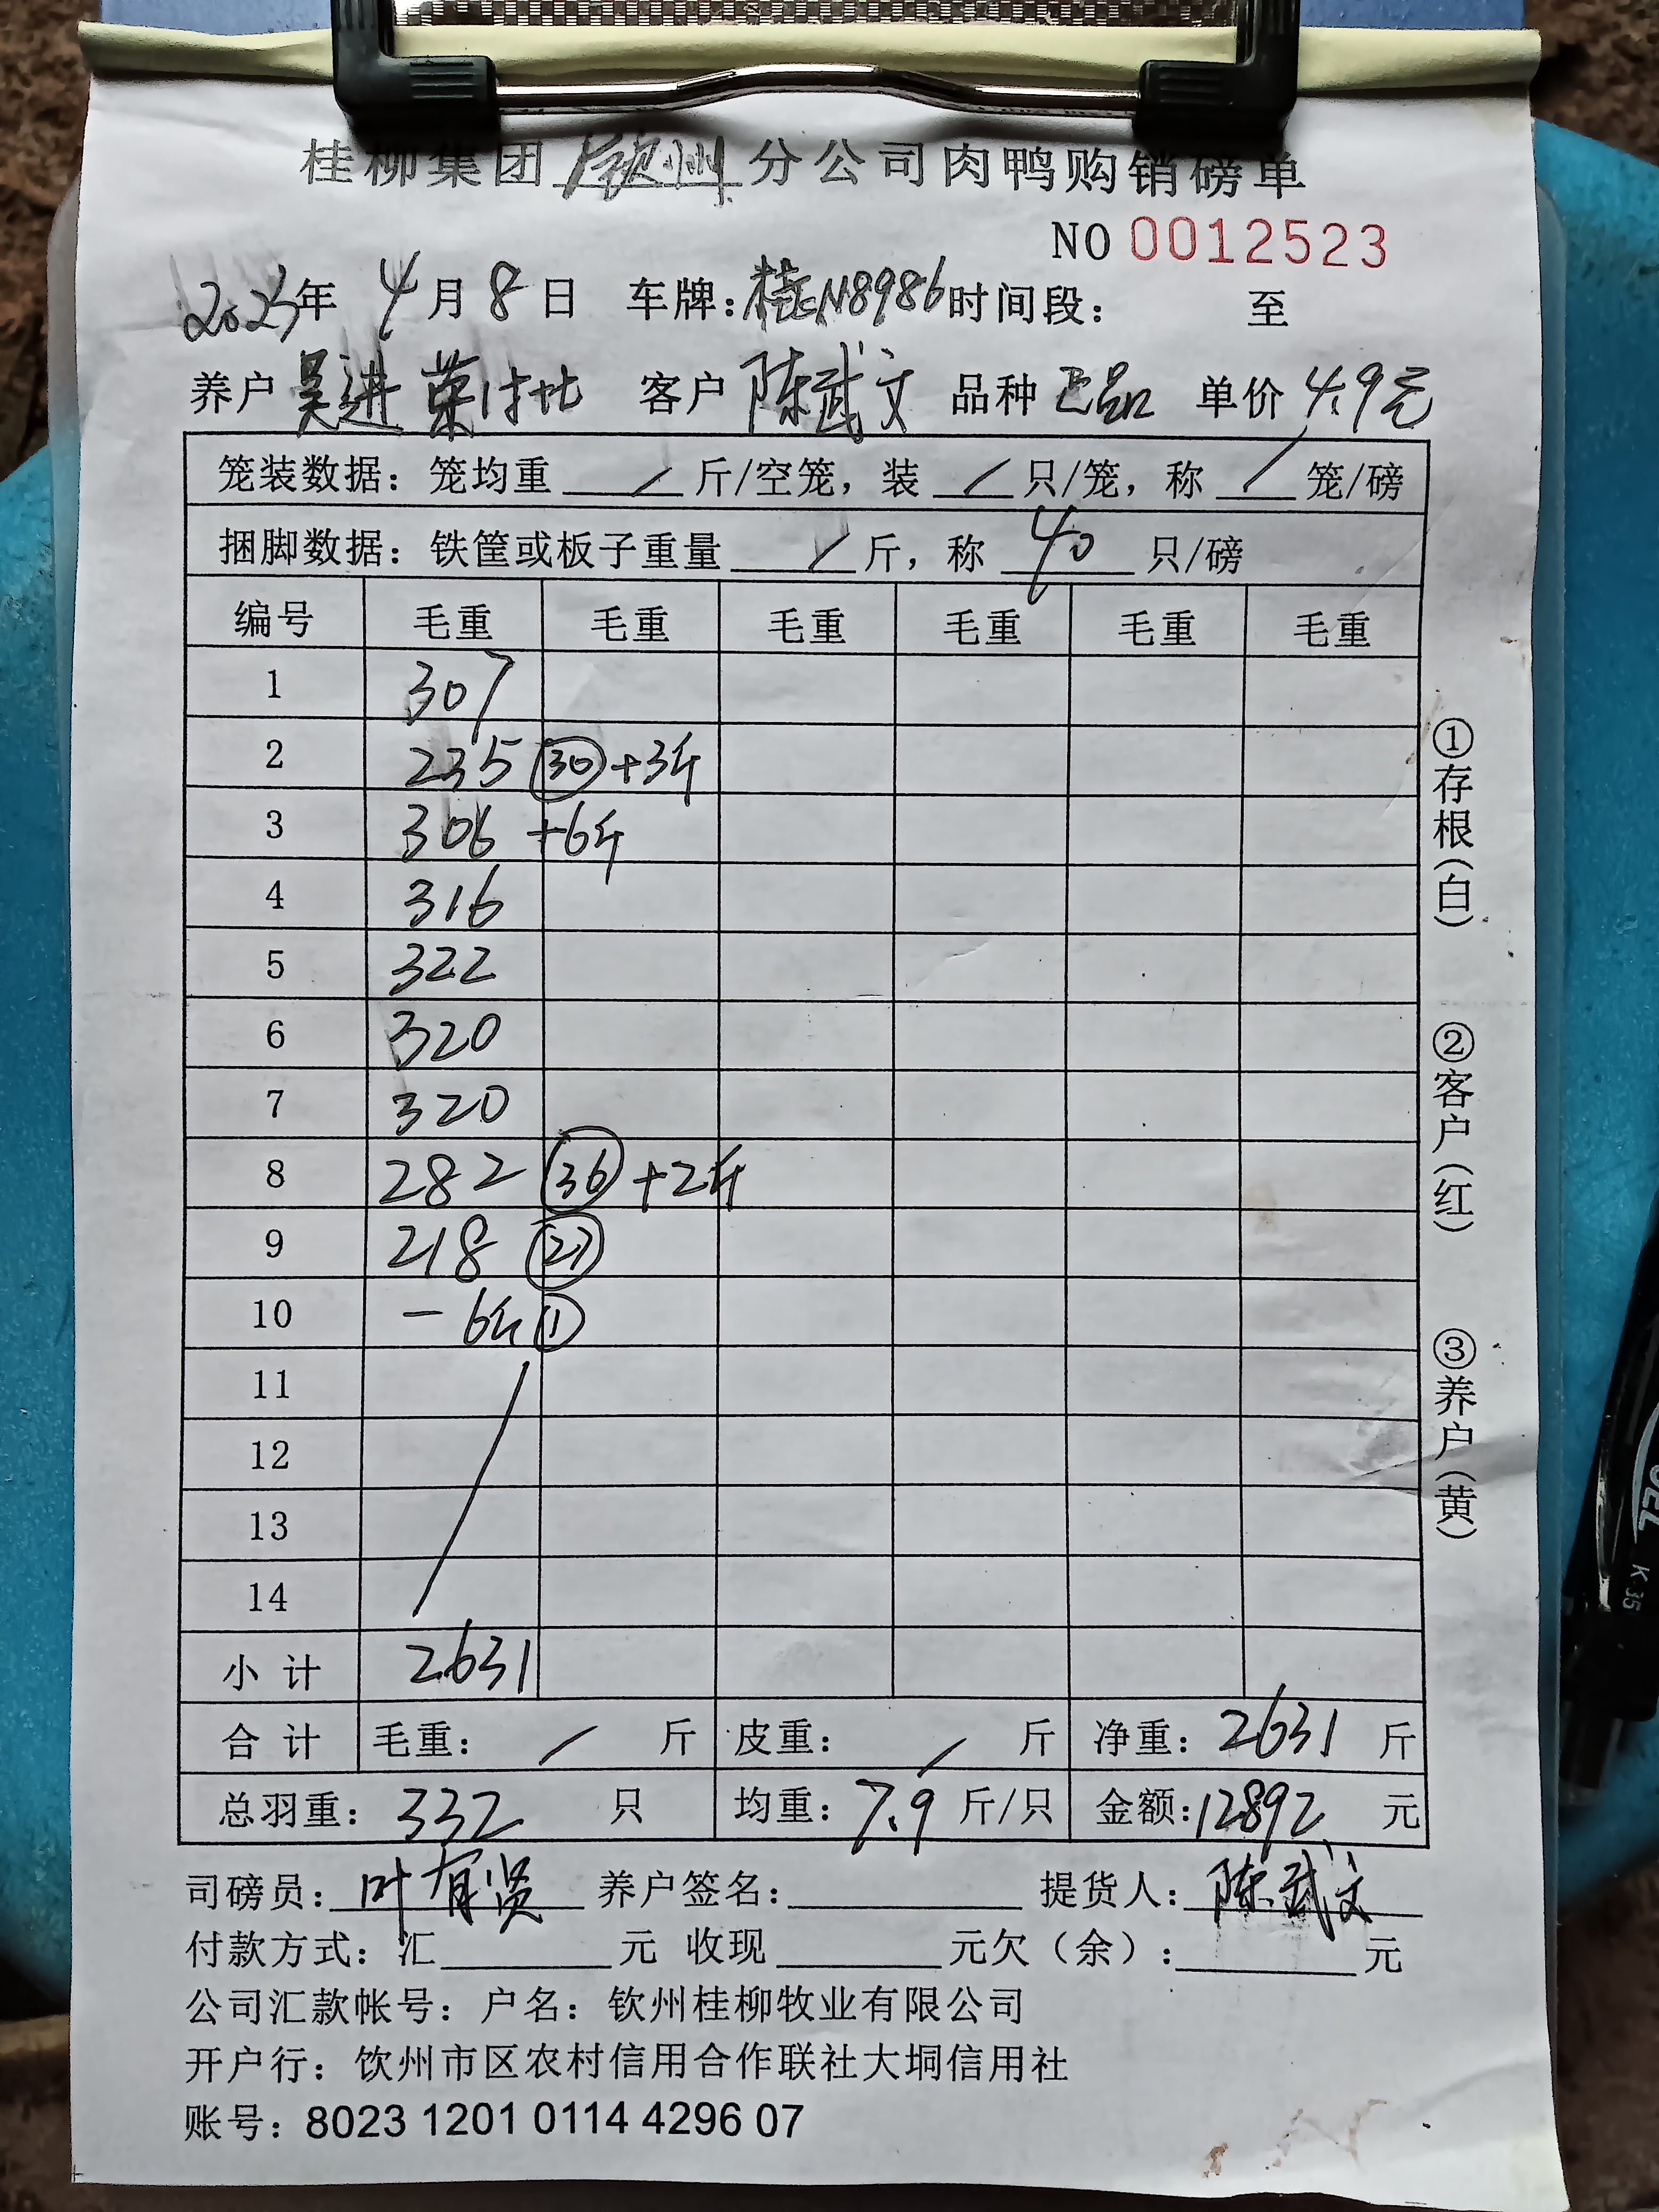 桂柳集团 钦州 分公司肉鸭购销磅单
NO 0012523
2023年 4月 8日 车牌:桂N8986 时间段: 至
养户 吴进荣 客户 陈武文 品种 正品 单价 4.9元
笼装数据: 笼均重 / 斤/空笼, 装 / 只/笼, 称 / 笼/磅
捆脚数据: 铁筐或板子重量 / 斤, 称 40 只/磅
编号 毛重 毛重 毛重 毛重 毛重 毛重
1 307
2 235 ㉚ +3斤
3 306 +6斤
4 316
5 322
6 320
7 320
8 282 ㊱ +2斤
9 218 ㉗
10 - 6斤 ①
11
12
13
14
小计 2631
合计 毛重: / 斤 皮重: / 斤 净重: 2631 斤
总羽重: 332 只 均重: 7.9 斤/只 金额: 12892 元
司磅员: 叶有贤 养户签名: 提货人: 陈武文
付款方式: 汇 元 收现 元欠(余): 元
公司汇款帐号: 户名: 钦州桂柳牧业有限公司
开户行: 饮州市区农村信用合作联社大垌信用社
账号: 8023 1201 0114 4296 07
①存根(白)
②客户(红)
③养户(黄)
K-35